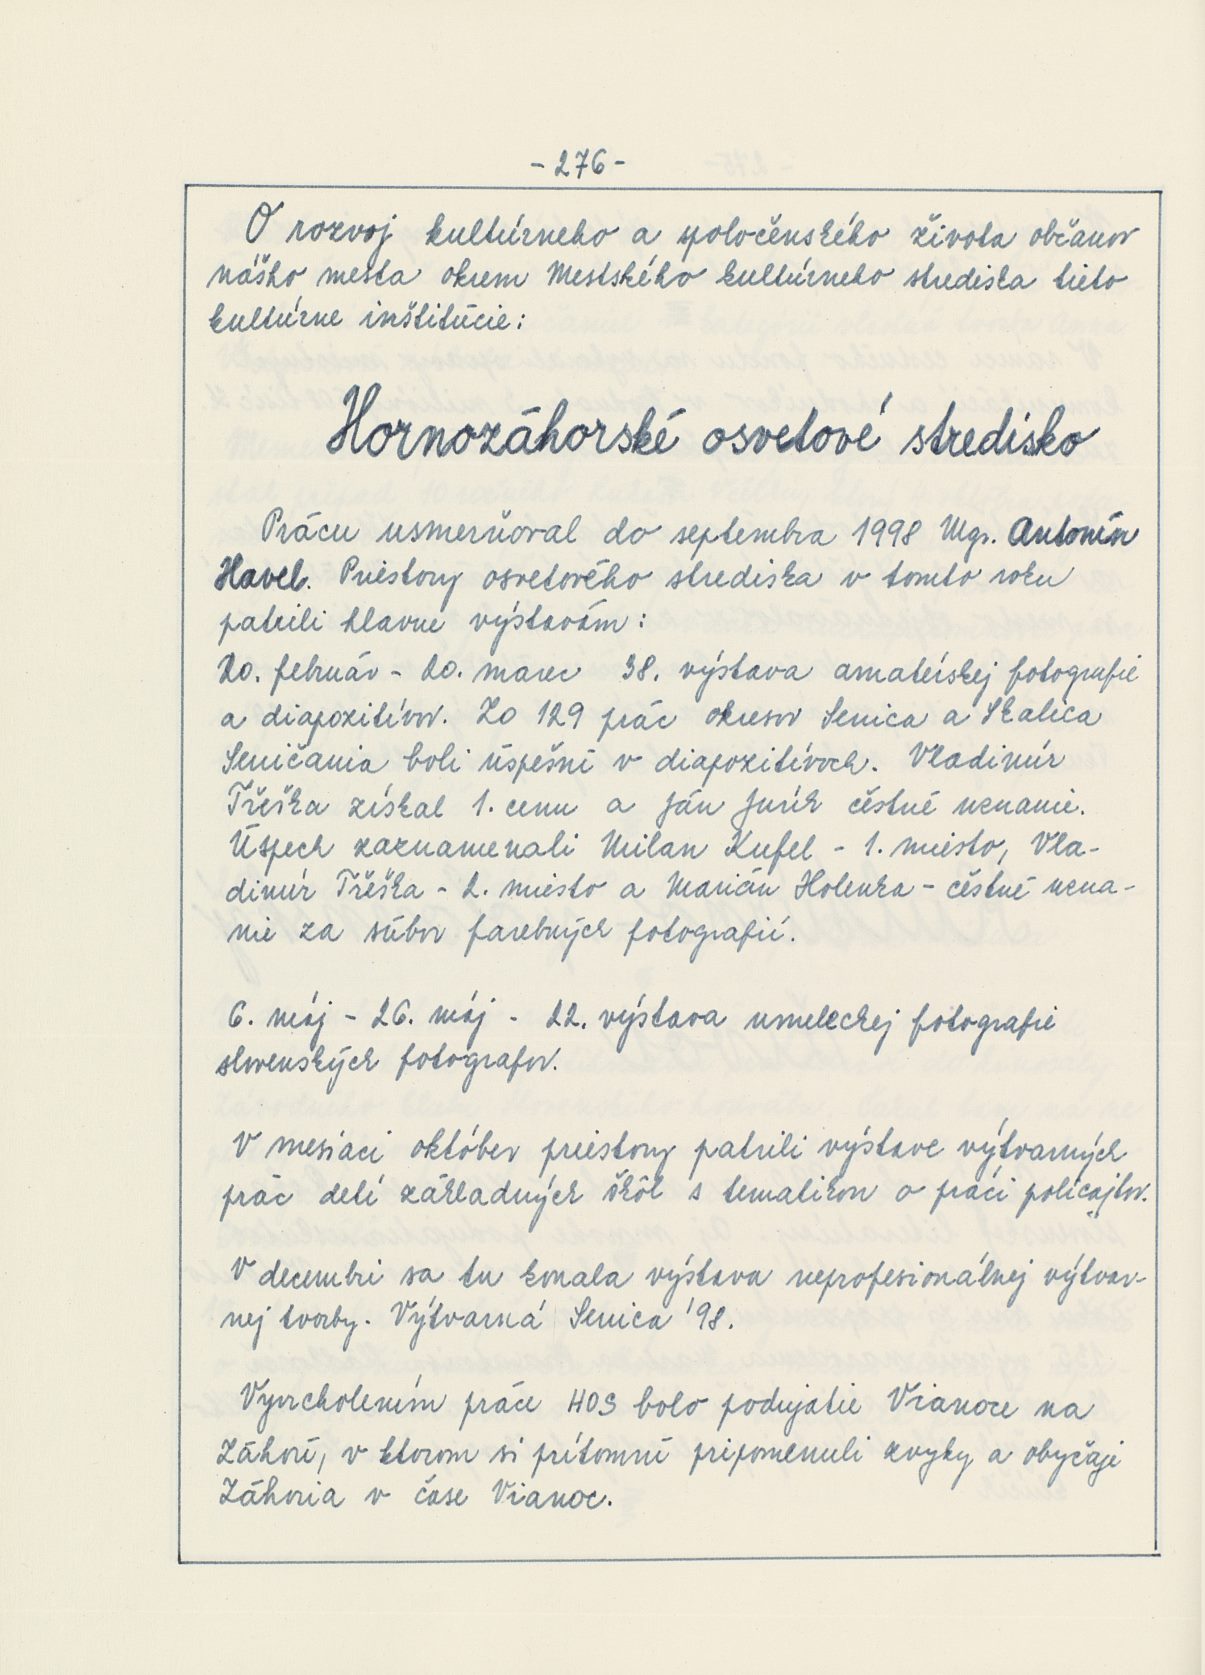 - 276 -
O rozvoj kultúrneho a spoločenského života občanov
nášho mesta okrem Mestského kultúrneho strediska tieto
kultúrne inštitúcie:
Hornozáhorské osvetové stredisko
Prácu usmerňoval do septembra 1998 Mgr. Antonín
Havel. Priestory osvetového strediska v tomto roku
patrili hlavne výstavám:
20. február - 20. marec 38. výstava amatérskej fotografie
a diapozitívov. Zo 129 prác okresov Senica a Skalica
Seničania boli úspešní v diapozitívoch. Vladimír
Třeška získal 1. cenu a Ján Jurík čéstné uznanie.
Úspech zaznamenali Milan Kufel - 1. miesto, Vla-
dimír Třeška - 2. miesto a Marián Holenka - čéstné uzna-
nie za súbor farebných fotografií.
6. máj - 26. máj - 22. výstava umeleckej fotografie
slovenských fotografov.
V mesiaci október priestory patrili výstave výtvarných
prác detí základných škôl s tematikou o práci policajtov.
V decembri sa tu konala výstava neprofesionálnej výtvar-
nej tvorby. Výtvarná Senica '98.
Vyvrcholením práce HOS bolo podujatie Vianoce na
Záhorí, v ktorom si prítomní pripomenuli zvyky a obyčaje
Záhoria v čase Vianoc.